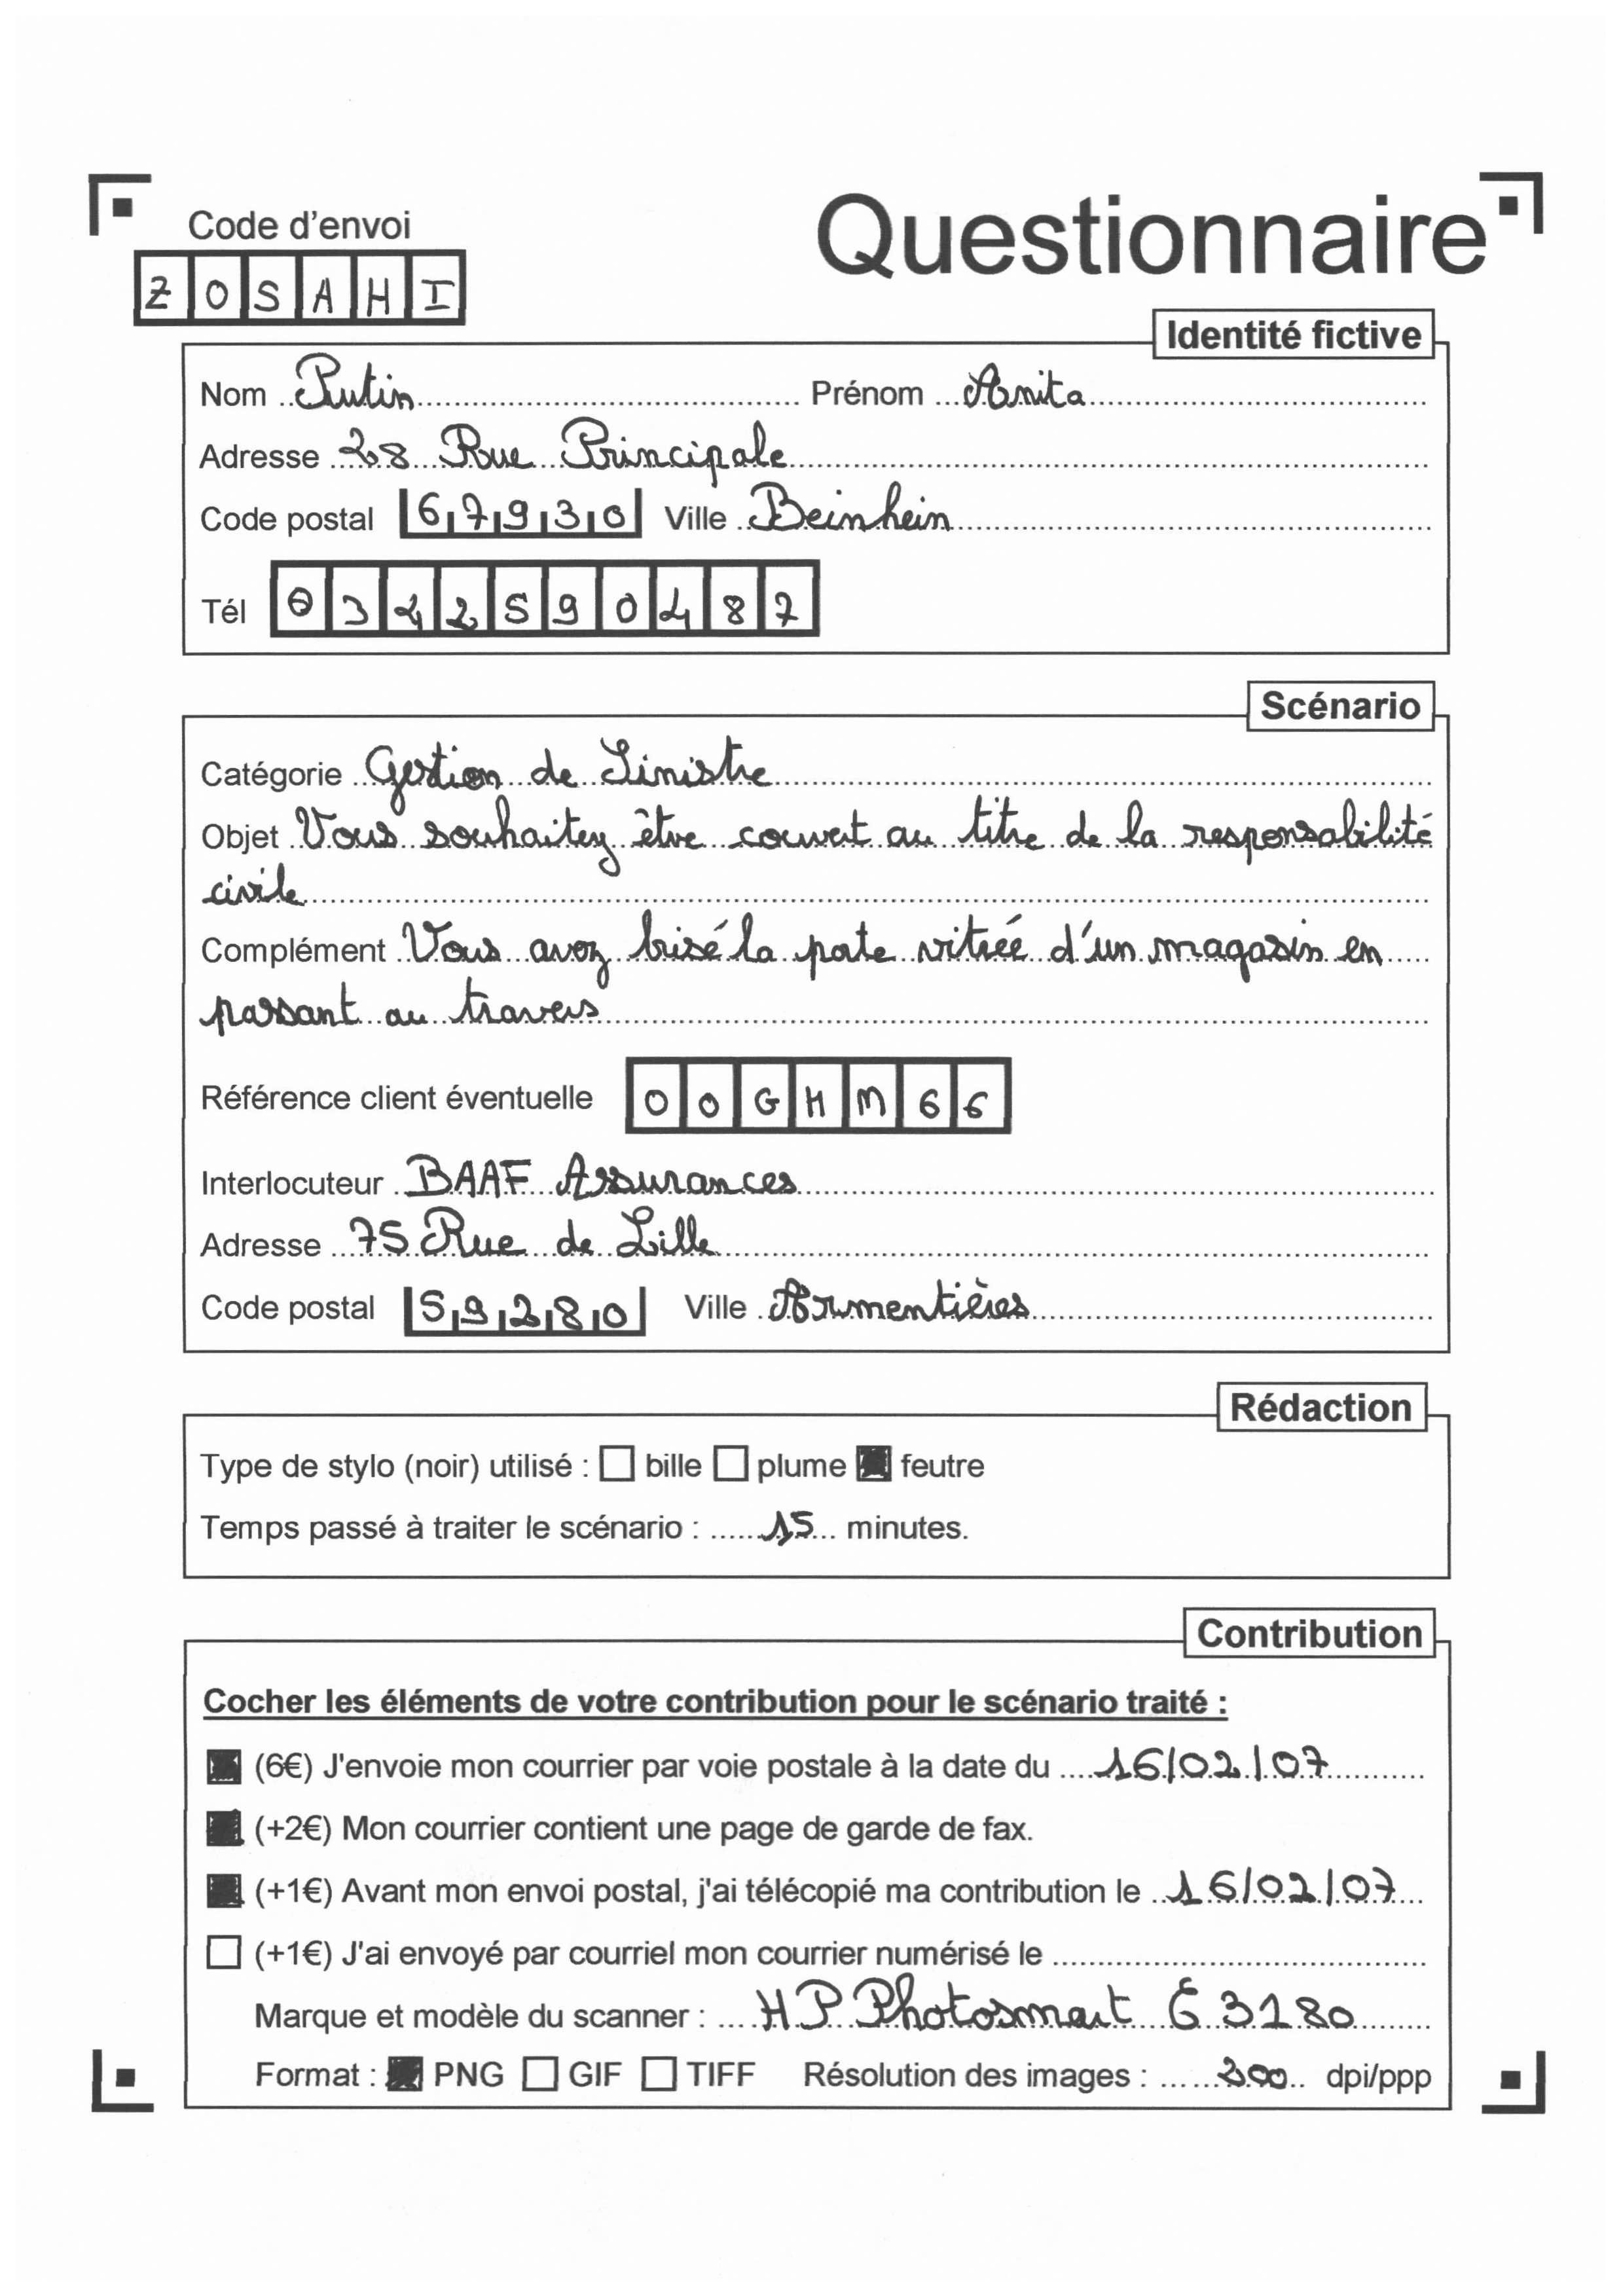 Code d'envoi
Questionnaire
ZOSAHI
Identité fictive
Nom Putin Prénom Anita
Adresse 28 Rue Principale
Code postal 67930 Ville Beinhein
Tél 0342590487
Scénario
Catégorie Gestion de Sinistre
Objet Vous souhaitez être couvert au titre de la responsabilité
civile
Complément Vous avez brisé la porte vitrée d'un magasin en
passant au travers
Référence client éventuelle OOGHM66
Interlocuteur BAAF Assurances
Adresse 75 Rue de Lille
Code postal 59280 Ville Armentières
Rédaction
Type de stylo (noir) utilisé : bille plume feutre
Temps passé à traiter le scénario : 15 minutes.
Contribution
Cocher les éléments de votre contribution pour le scénario traité :
(6€) J'envoie mon courrier par voie postale à la date du 16/02/07
(+2€) Mon courrier contient une page de garde de fax.
(+1€) Avant mon envoi postal, j'ai télécopié ma contribution le 16/02/07
(+1€) J'ai envoyé par courriel mon courrier numérisé le
Marque et modèle du scanner : HP Photosmart 3180
Format : PNG GIF TIFF Résolution des images : 200 dpi/ppp